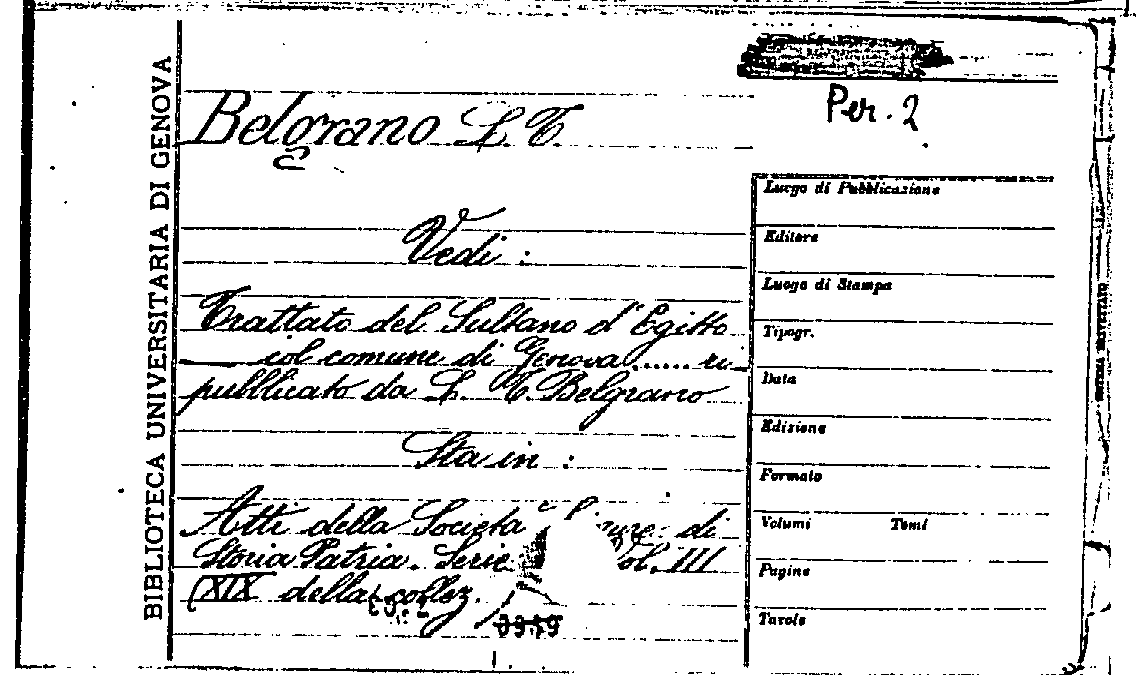 BIBLIOTECA UNIVERSITARIA DI GENOVA
Per. 2
Belgrano L. T.
Vedi :
Trattato del Sultano d'Egitto
col comune di Genova ..... ri
pubblicato da L. T. Belgrano
Sta in :
Atti della Società di
Storia Patria. Serie Vol. III
(XIX della collez.
0959
Luogo di Pubblicazione
Editore
Luogo di Stampa
Tipogr.
Data
Edizione
Formato
Volumi Tomi
Pagine
Tavole